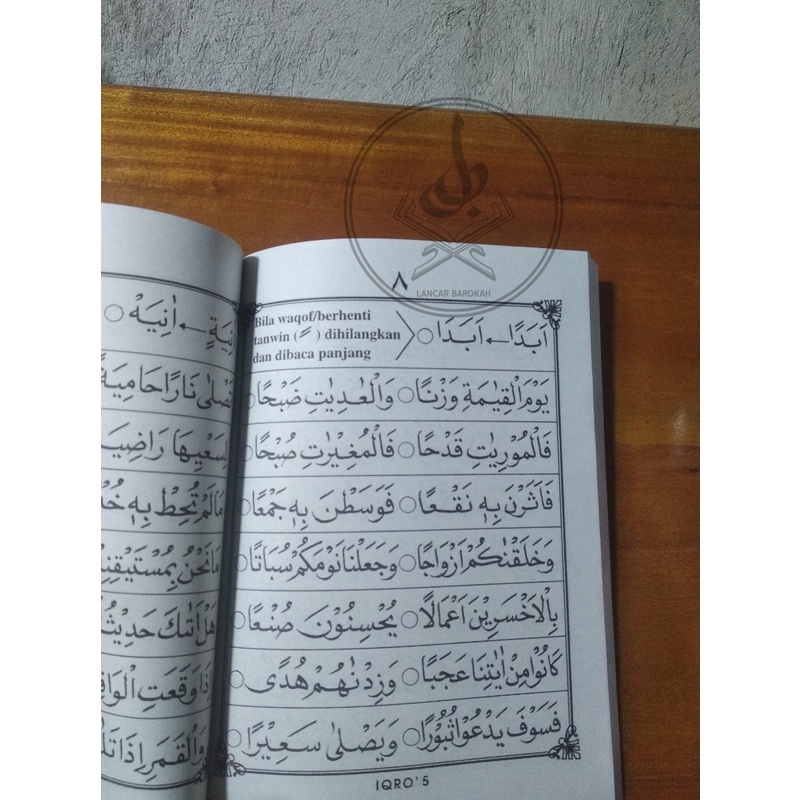 LANCAR BAROKAH
٨
اَبَدًا ← اَبَدَا ○
Bila waqof/berhenti
tanwin ( ـً ) dihilangkan
dan dibaca panjang
يَوْمَ الْقِيٰمَةِ وَزْنًا ○ وَالْعٰدِيٰتِ ضَبْحًا ○
فَالْمُوْرِيٰتِ قَدْحًا ○ فَالْمُغِيْرٰتِ صُبْحًا ○
فَاَثَرْنَ بِهٖ نَقْعًا ○ فَوَسَطْنَ بِهٖ جَمْعًا ○
وَخَلَقْنٰكُمْ اَزْوَاجًا ○ وَجَعَلْنَا نَوْمَكُمْ سُبَاتًا ○
بِالْاَخْسَرِيْنَ اَعْمَالًا ○ يُحْسِنُوْنَ صُنْعًا ○
كَانُوْا مِنْ اٰيٰتِنَا عَجَبًا ○ وَزِدْنٰهُمْ هُدًى ○
فَسَوْفَ يَدْعُوْا ثُبُوْرًا ○ وَيَصْلٰى سَعِيْرًا ○
IQRO' 5
← اٰنِيَهْ ○
تَصْلٰى نَارًا حَامِيَةً
لِسَعْيِهَا
مَالَمْ تُحِطْ بِهٖ
مَانَحْنُ
هَلْ اَتٰىكَ حَدِيْثُ
اِذَا وَقَعَتِ
وَالْقَمَرِ اِذَا